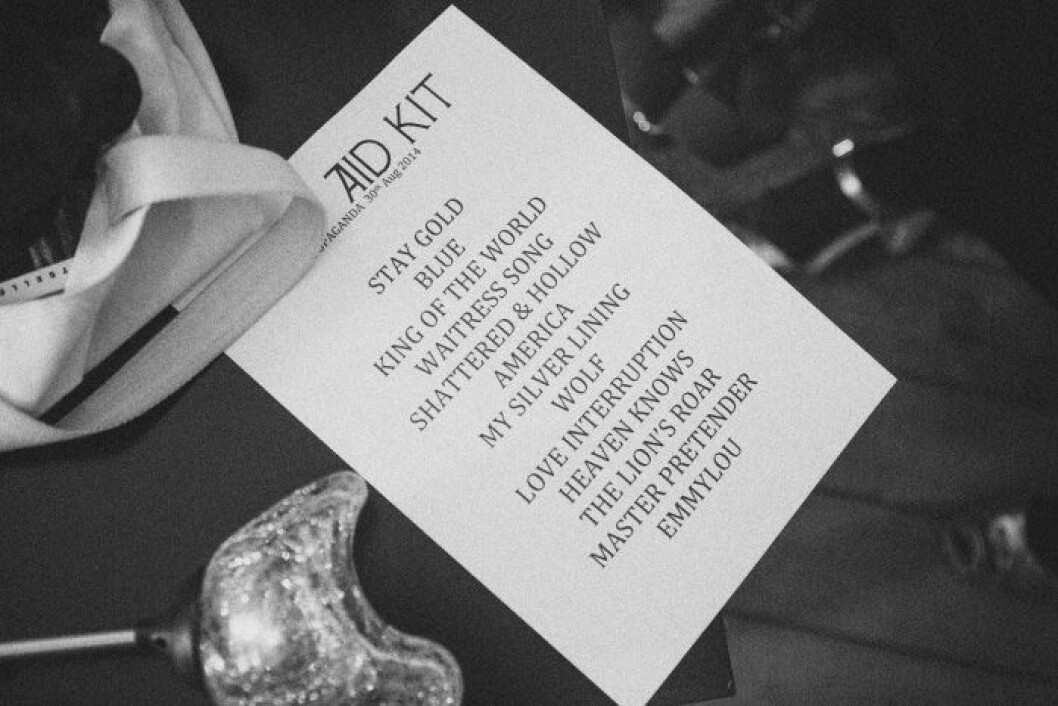 AID KIT
PAGANDA 30th Aug 2014
STAY GOLD
BLUE
KING OF THE WORLD
WAITRESS SONG
SHATTERED & HOLLOW
AMERICA
MY SILVER LINING
WOLF
LOVE INTERRUPTION
HEAVEN KNOWS
THE LION'S ROAR
MASTER PRETENDER
EMMYLOU